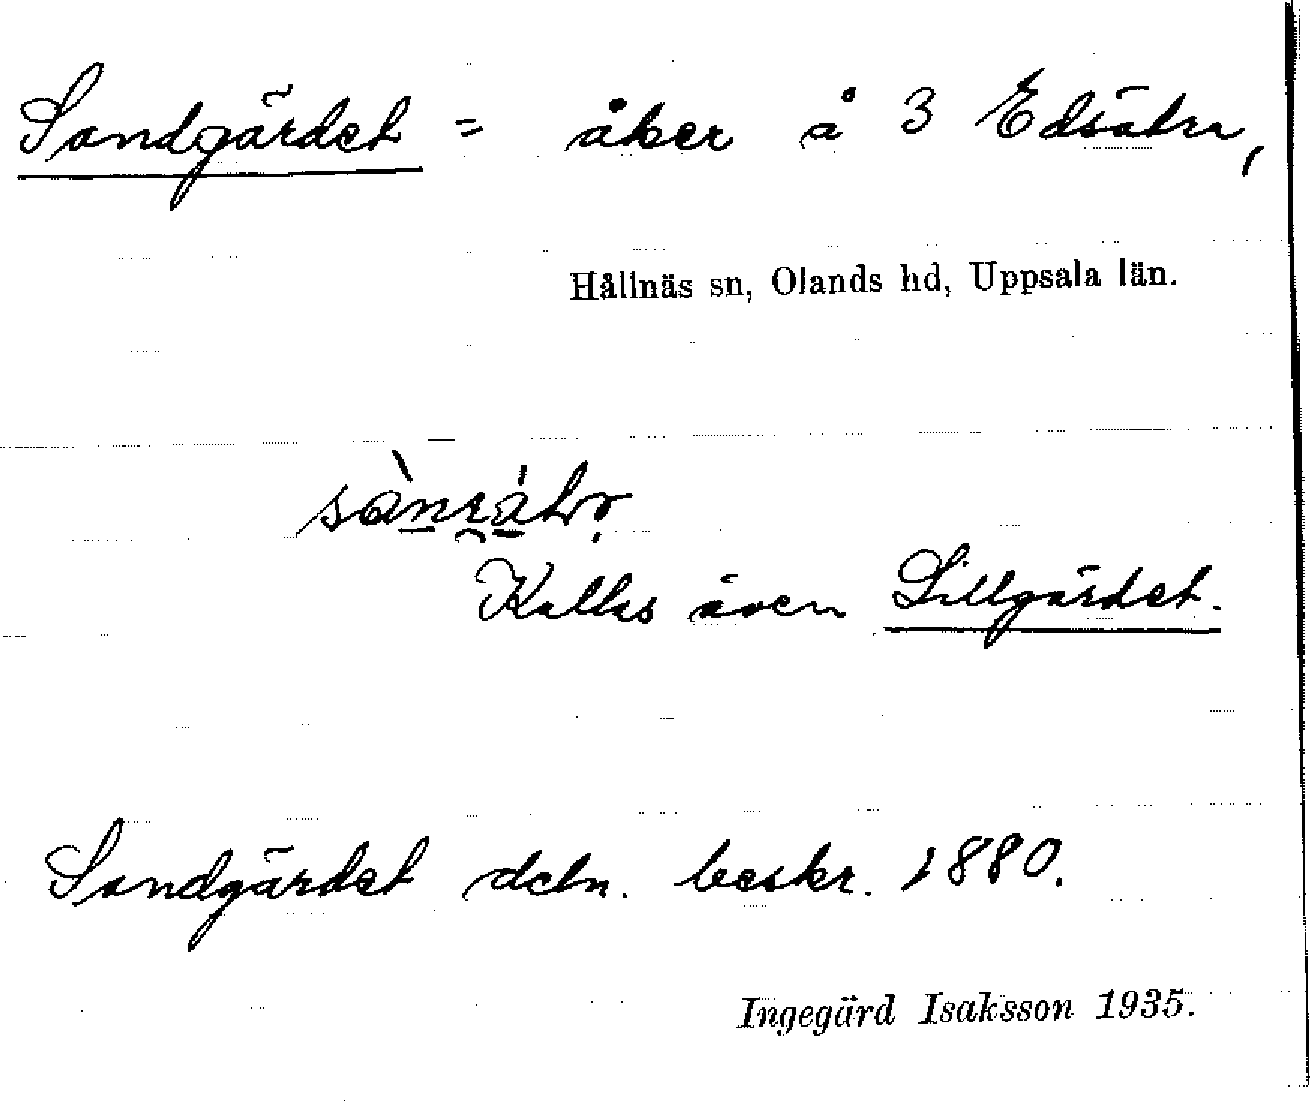 Sandgärdet = åker å 3 Edsätra,
Hållnäs sn, Olands hd, Uppsala län.
Kallas även Lillgärdet.
Sandgärdet dctn. beskr. 1880.
Ingegärd Isaksson 1935.